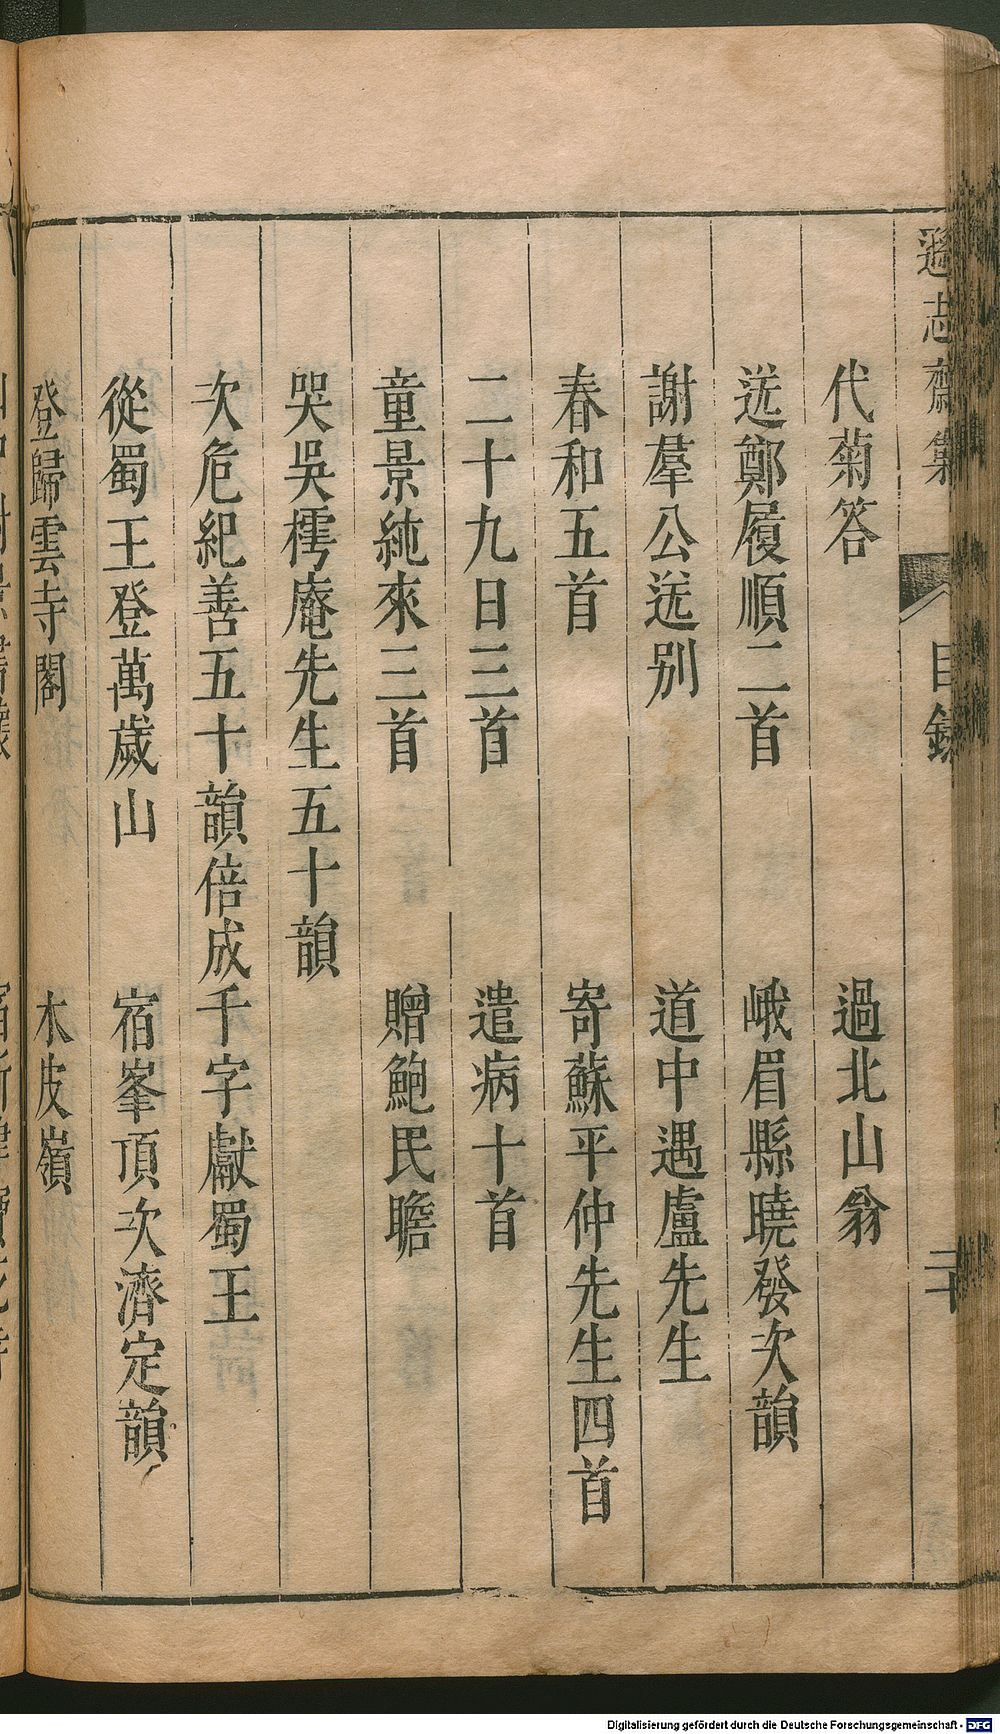 遜志齋集
目錄
二十
代菊答　過北山翁
送鄭履順二首　峨眉縣曉發次韻
謝羣公送别　道中遇盧先生
春和五首　寄蘇平仲先生四首
二十九日三首　遣病十首
童景純來三首　贈鮑民瞻
哭吳樗庵先生五十韻
次危紀善五十韻倍成千字獻蜀王
從蜀王登萬歲山　宿峯頂次濟定韻
登歸雲寺閣　木皮嶺
Digitalisierung gefördert durch die Deutsche Forschungsgemeinschaft - DFG